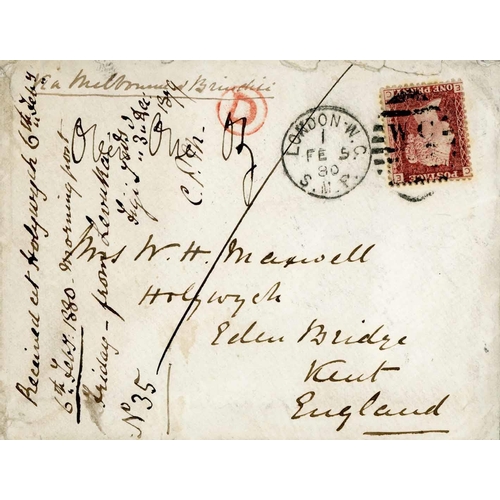 Via Melbourne & Brindisi
D
LONDON·W.C
1
FE 5
80
S.M.P.
ONE PENNY
POSTAGE
W.C
Mrs W. H. Maxwell
Holywych
Eden Bridge
Kent
England
Received at Holywych 6th Feby
6th Feby. 1880 - Morning post
Friday - from Levuka
Fiji
No 35